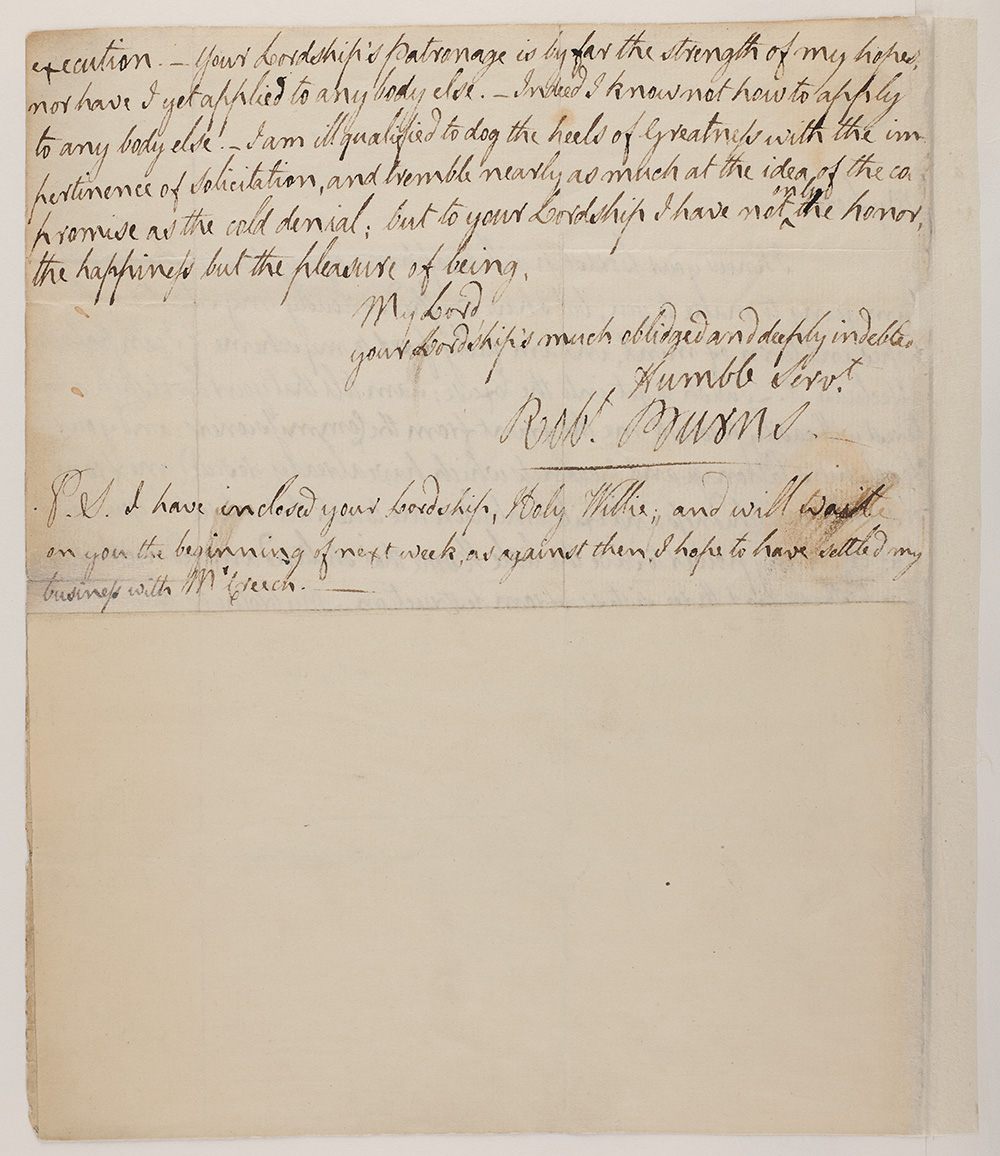 execution. — Your Lordship's Patronage is by far the strength of my hopes;
nor have I yet applied to any body else. — Indeed I know not how to apply
to any body else. — I am ill qualified to dog the heels of Greatness with the im-
pertinence of Solicitation, and tremble nearly as much at the idea of the co
promise as the cold denial; but to your Lordship I have not only the honor,
the happiness but the pleasure of being,
My Lord,
your Lordship's much oblidged and deeply indebted
Humble Serv.t
Rob.t Burns. —
P.S. I have inclosed your Lordship, Holy Willie; and will wait
on you the beginning of next week, as against then, I hope to have settled my
business with Mr Creech. —